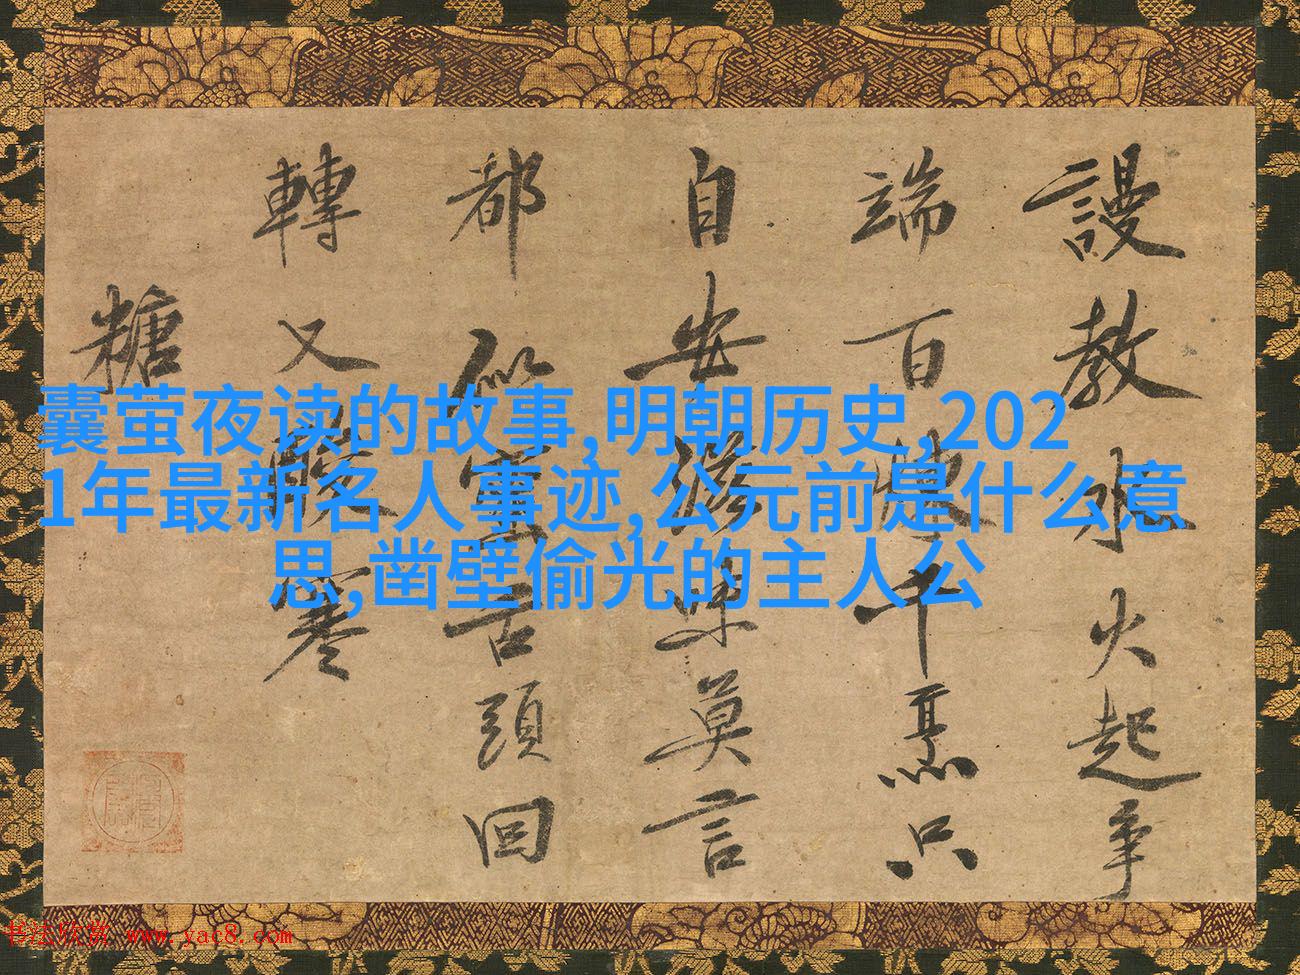 謾教水火起爭
端百煉千只
自安滋味莫言
都似蜜舌頭回
轉又酸寒
糖
囊萤夜读的故事,明朝历史,202
1年最新名人事迹,公元前是什么意
思,凿壁偷光的主人公
书法欣赏 www.yac8.com